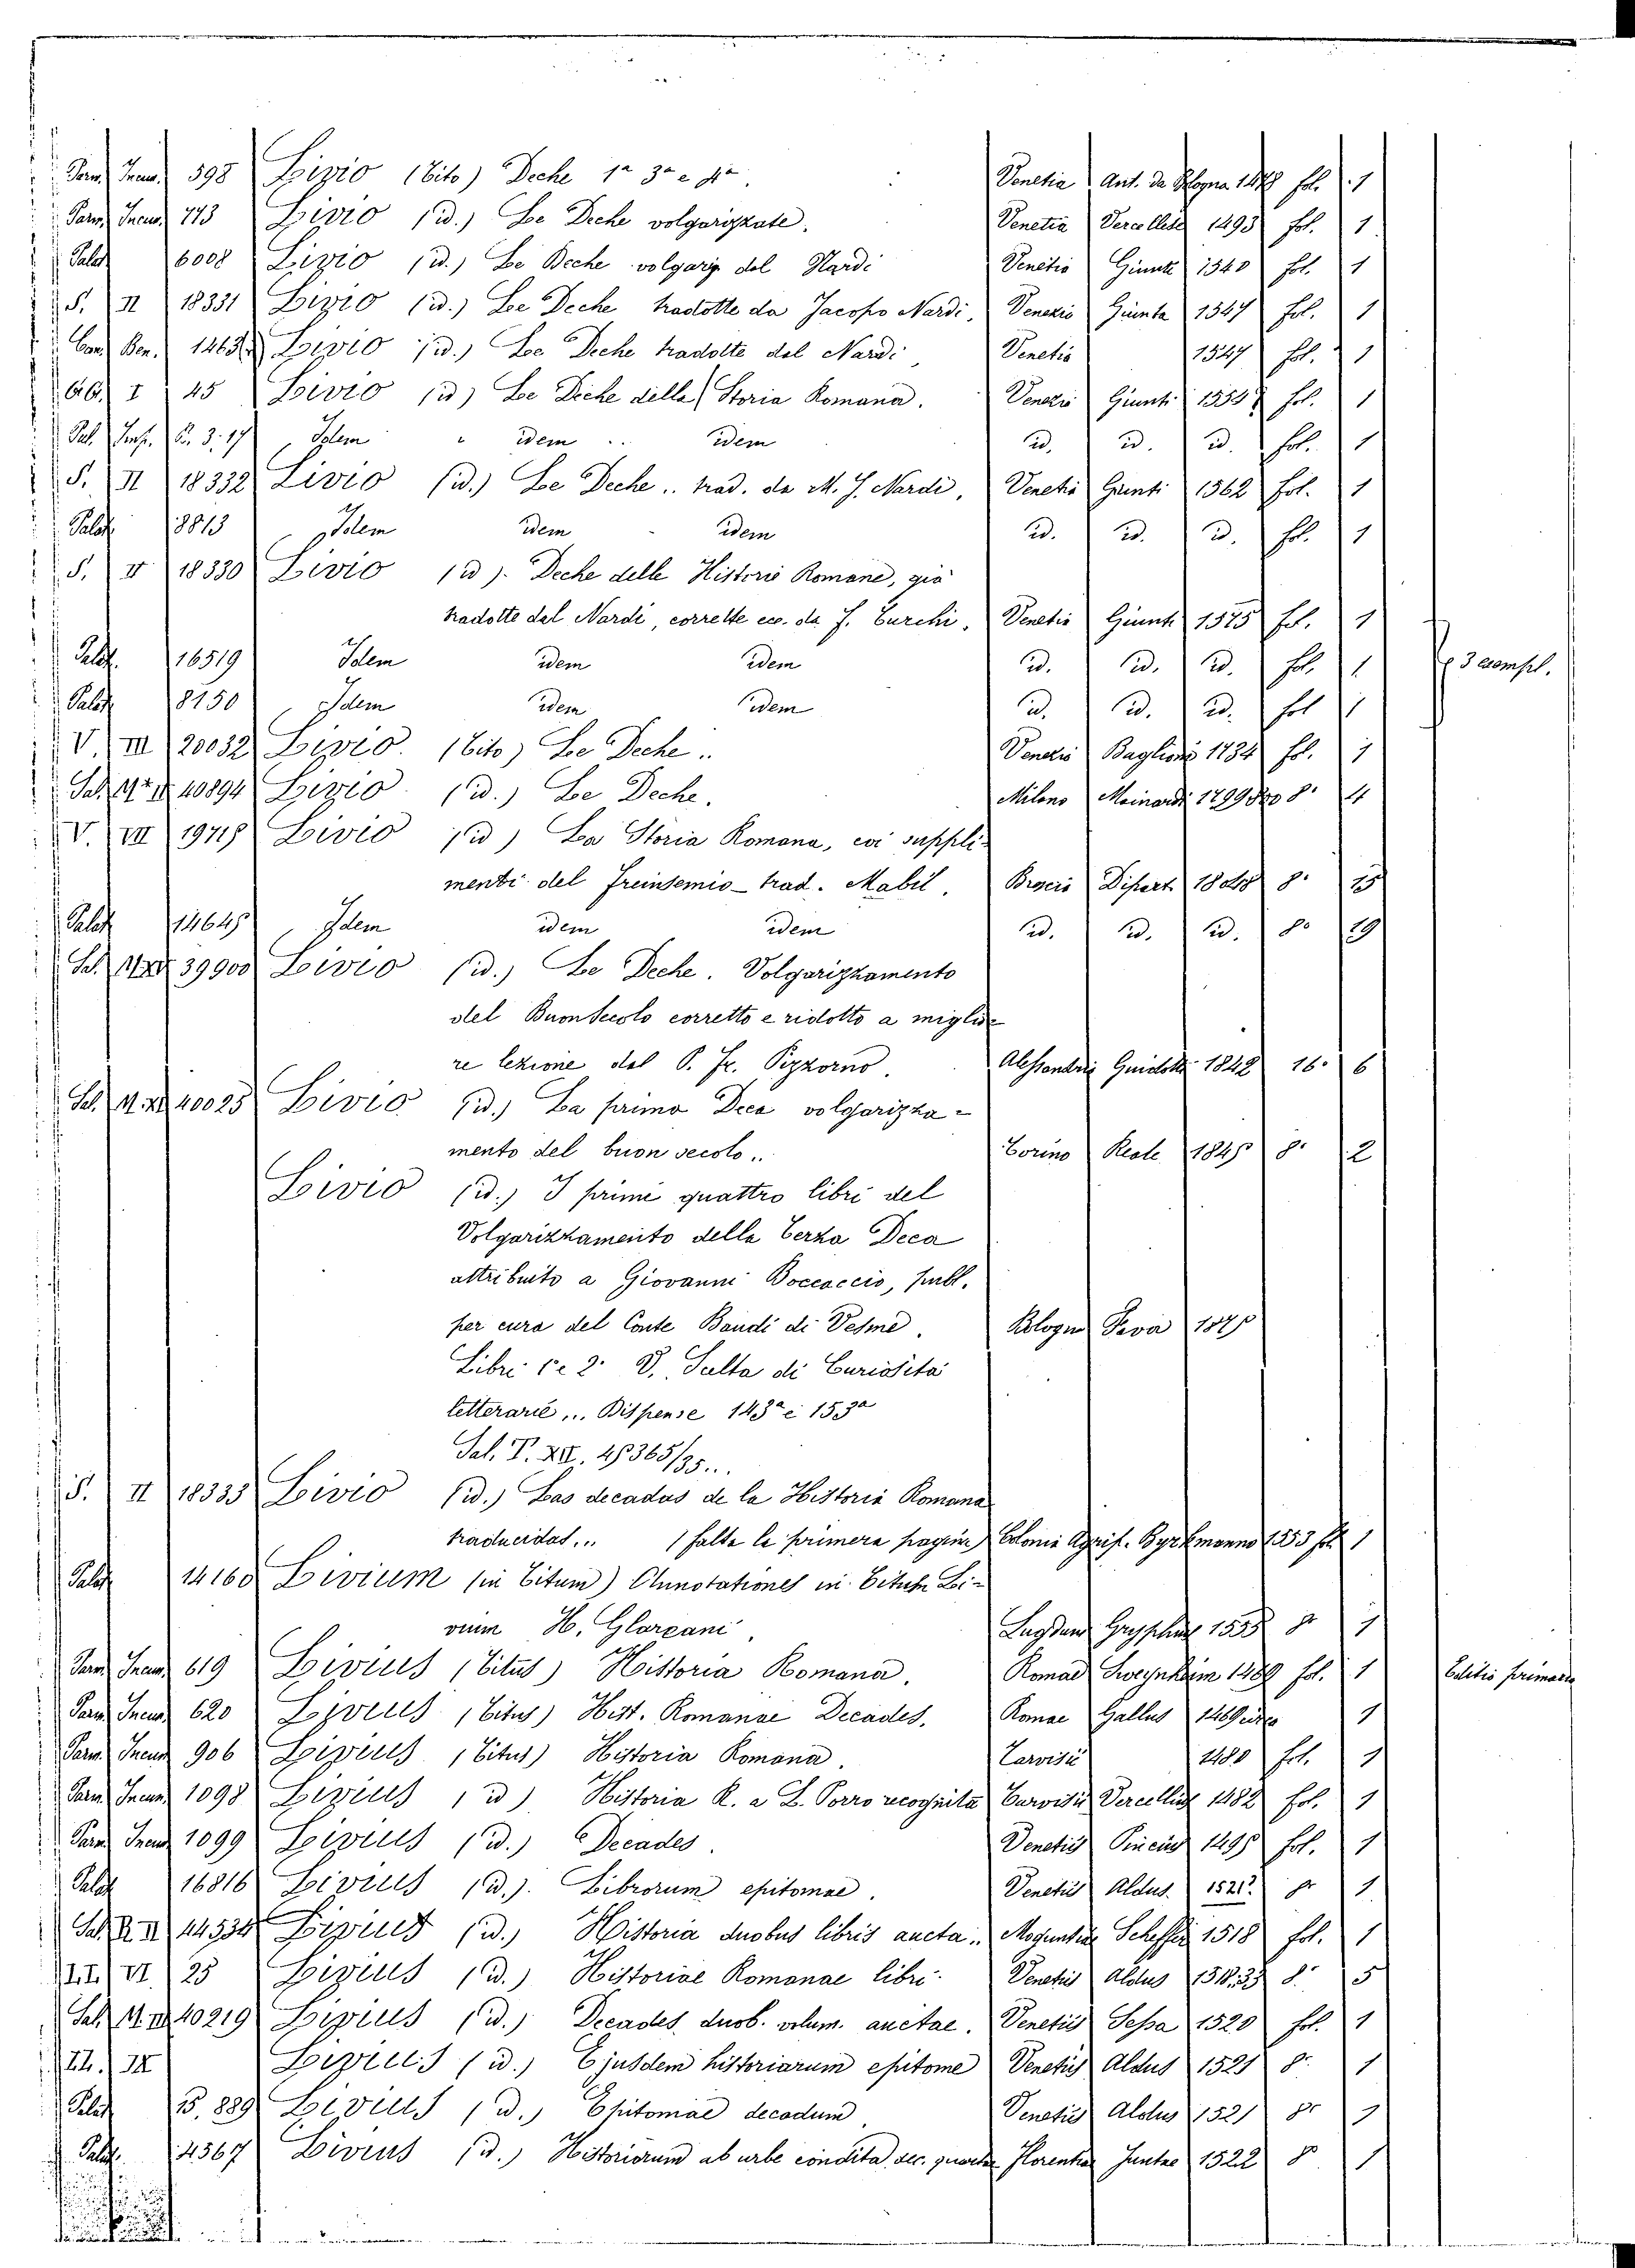 Parm. Incun. 598 Livio (Tito) Deche 1a 3a e 4a. Venetia Ant. da Bologna 1478 fol. 1
Parm. Incun. 773 Livio (id.) Le Deche volgarizzate. Venetia Vercellese 1493 fol. 1
Palat. 6008 Livio (id.) Le Deche volgariz. dal Nardi Venetia Giunti 1540 fol. 1
S. II 18331 Livio (id.) Le Deche tradotte da Jacopo Nardi, Venezia Giunta 1547 fol. 1
Ben. Livio (id.) Le Deche tradotte dal Nardi Venetia 1547 fol. 1
I 45 Livio (id) Le Deche della Storia Romana. Venezia Giunti fol. 1
Pal. 3. 17 Idem idem idem id. id. id. fol. 1
S. II 18332 Livio (id.) Le Deche .. trad. da M. J. Nardi, Venetia Giunti 1562 fol. 1
Palat. 8813 Idem idem idem id. id. id. fol. 1
S. II 18330 Livio (id). Deche delle Historie Romane, già
tradotte dal Nardi, corrette ecc. da F. Turchi, Venetia Giunti 1575 fol. 1
Palat. 16519 Idem idem idem id. id. id. fol. 1 3 esempl.
Palat. 8150 Idem idem idem id. id. id. fol 1
V. III 20032 Livio. (Tito) Le Deche .. Venezia Baglioni 1734 fol. 1
40894 Livio (id.) Le Deche. Milano Mainardi 8° 4
V. VII Livio (id) La Storia Romana, coi suppli-
menti del Freinsemio - trad. Mabil. Brescia Dipart. 8°
Palat. 14645 Idem idem idem id. id. id. 8°
39900 Livio (id.) Le Deche. Volgarizzamento
del Buonsecolo corretto e ridotto a miglio
re lezione dal P. Fr. Pizzorno. Alessandria Guidotti 1842 16° 6
40025 Livio (id.) La prima Deca volgarizza-
mento del buon secolo .. Torino Reale 1845 8° 2
Livio (id.) I primi quattro libri del
Volgarizzamento della Terza Deca
attribuito a Giovanni Boccaccio, publ.
per cura del Conte Baudi di Vesme. Bologna 1875
Libri 1° e 2° V. Scelta di Curiosità
letterarie, .. Dispense 143a e 153a
Sal. 45365/35 ...
S. II 18333 Livio (id.) Las decadas de la Historia Romana
traducidas ... (falta la primera pagina) Colonia Agrip. Byrkmanno 1553 fol. 1
Palat. 14160 Livium (in Titum) Annotationes in Titum Li-
vium H. Glareani, Lugduni Gryphius 1555 8° 1
Parm. Incun. 619 Livius (Titus) Historia Romana. Romae Sweynheim 1469 fol. 1 Editio primaria
Parm. Incun. 620 Livius (Titus) Hist. Romanae Decades. Romae Gallus 1469 circa 1
Parm. Incun. 906 Livius (Titus) Historia Romana. Tarvisii 1480 fol. 1
Parm. Incun. 1098 Livius (id) Historia R. a L. Porro recognita Tarvisii Vercellius 1482 fol. 1
Parm. Incun. 1099 Livius (id.) Decades. Venetiis Pincius 1495 fol. 1
Palat. 16816 Livius (id.). Librorum epitomae. Venetiis Aldus 1521? 8° 1
44534 Livius (id.) Historia duobus libris aucta .. Moguntiae Scheffer 1518 fol. 1
VI 25 Livius (id.) Historiae Romanae libri. Venetiis Aldus 1518.33 8° 5
Sal. 40219 Livius (id.) Decades duob. volum. auctae. Venetiis Sessa 1520 fol. 1
Livius (id.) Ejusdem historiarum epitome Venetiis Aldus 1521 8° 1
Palat. 15.889 Livius (id.) Epitomae decadum Venetiis Aldus 1521 8° 1
Palat. 14367 Livius (id.) Historiarum ab urbe condita dec. quarta Florentiae Juntae 1522 8° 1